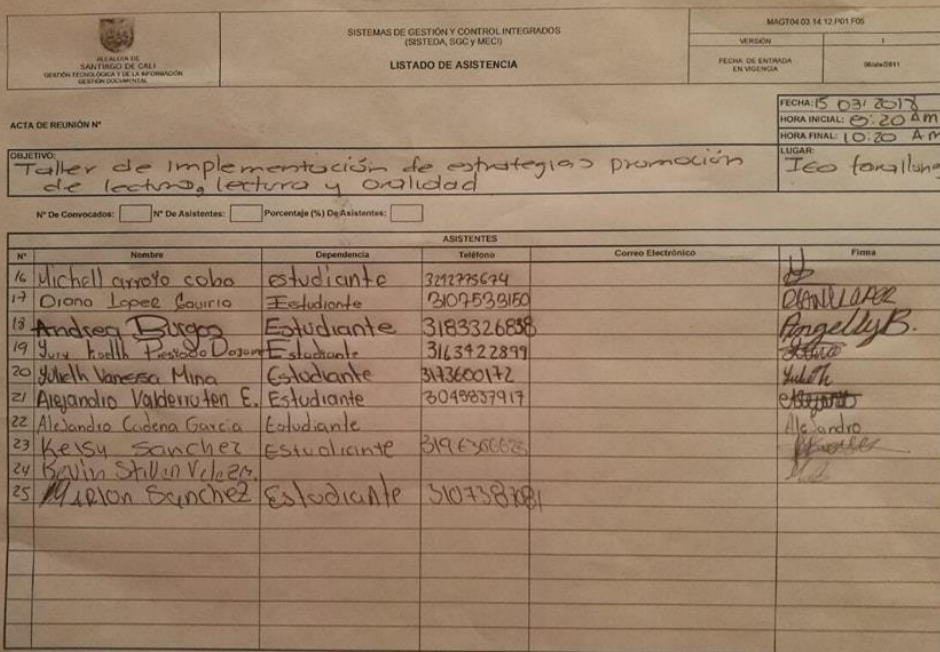 ALCALDÍA DE
SANTIAGO DE CALI
GESTIÓN TECNOLÓGICA Y DE LA INFORMACIÓN
GESTIÓN DOCUMENTAL
SISTEMAS DE GESTIÓN Y CONTROL INTEGRADOS
(SISTEDA, SGC y MECI)
LISTADO DE ASISTENCIA
MAGT04.03.14.12.P01.F05
VERSIÓN 1
FECHA DE ENTRADA
EN VIGENCIA
ACTA DE REUNIÓN N°
FECHA: 15 03/ 2018
HORA INICIAL: 20 AM
HORA FINAL: 10:20 AM
OBJETIVO:
Taller de implementación de estrategias promoción
de lectura, lectura y oralidad
LUGAR:
N° De Convocados: N° De Asistentes: Porcentaje (%) De Asistentes:
ASISTENTES
N° Nombre Dependencia Teléfono Correo Electrónico Firma
16 Michell arroyo cobo estudiante
17 Diana Lopez Estudiante 3107533150 DIANA LOPEZ
18 Andrea Burgos Estudiante 3183326838 Angelly B.
19 Estudiante 3163422899
20 Yulieth Vanessa Mina Estudiante 3173600172 Yulieth
21 Alejandro Valderruten E. Estudiante 3045837917
22 Alejandro Cadena Garcia Estudiante Alejandro
23 Keisy Sanchez Estudiante
24 Kevin Stiven
25 Marlon Sanchez Estudiante 3107387081